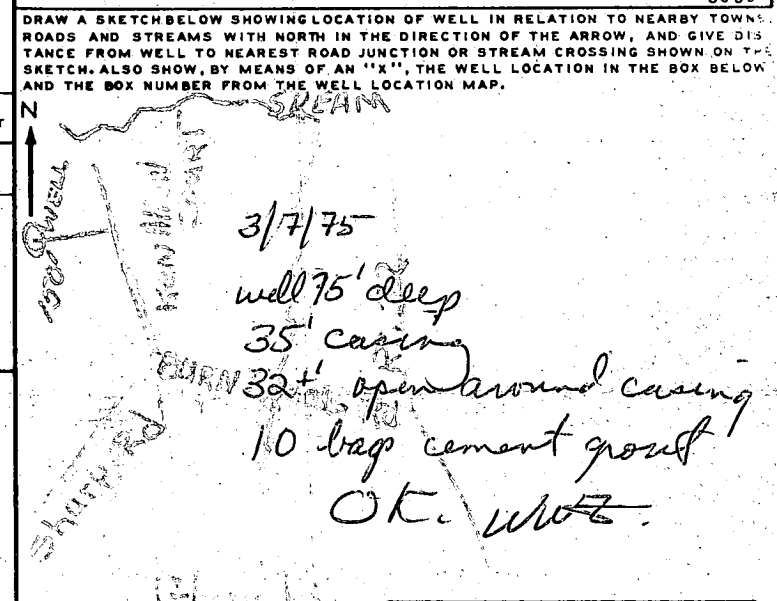 DRAW A SKETCH BELOW SHOWING LOCATION OF WELL IN RELATION TO NEARBY TOWNS,
ROADS AND STREAMS WITH NORTH IN THE DIRECTION OF THE ARROW, AND GIVE DIS
TANCE FROM WELL TO NEAREST ROAD JUNCTION OR STREAM CROSSING SHOWN ON THE
SKETCH. ALSO SHOW, BY MEANS OF AN "X", THE WELL LOCATION IN THE BOX BELOW
AND THE BOX NUMBER FROM THE WELL LOCATION MAP.
N
STREAM
3/7/75
well 75' deep
35' casing
32+' open around casing
10 bags cement grout
OK.
BURN
RD
Sharp Rd